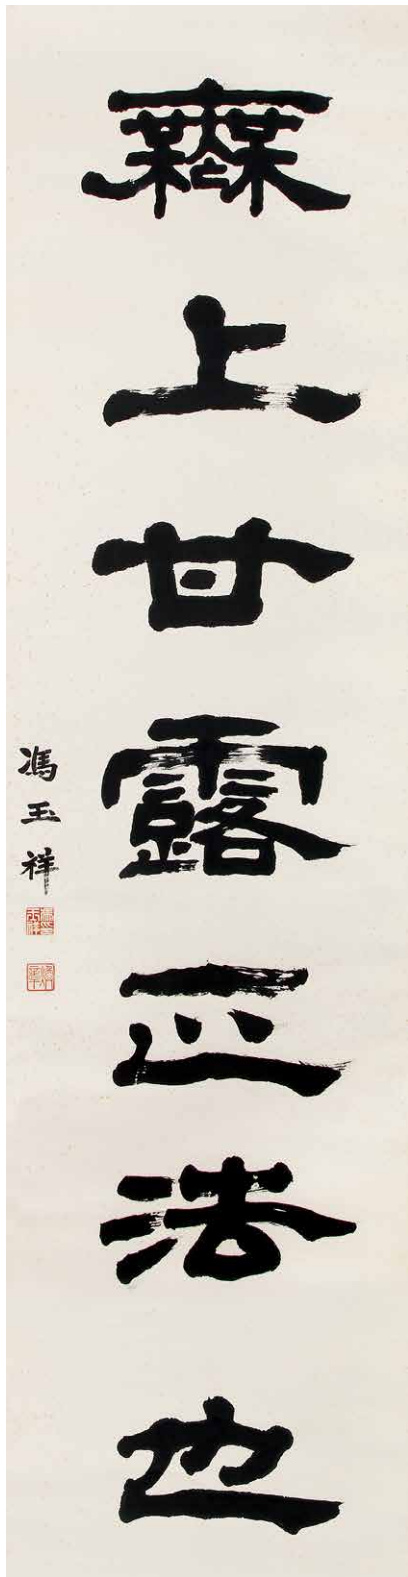 無上甘露正法也
馮玉祥